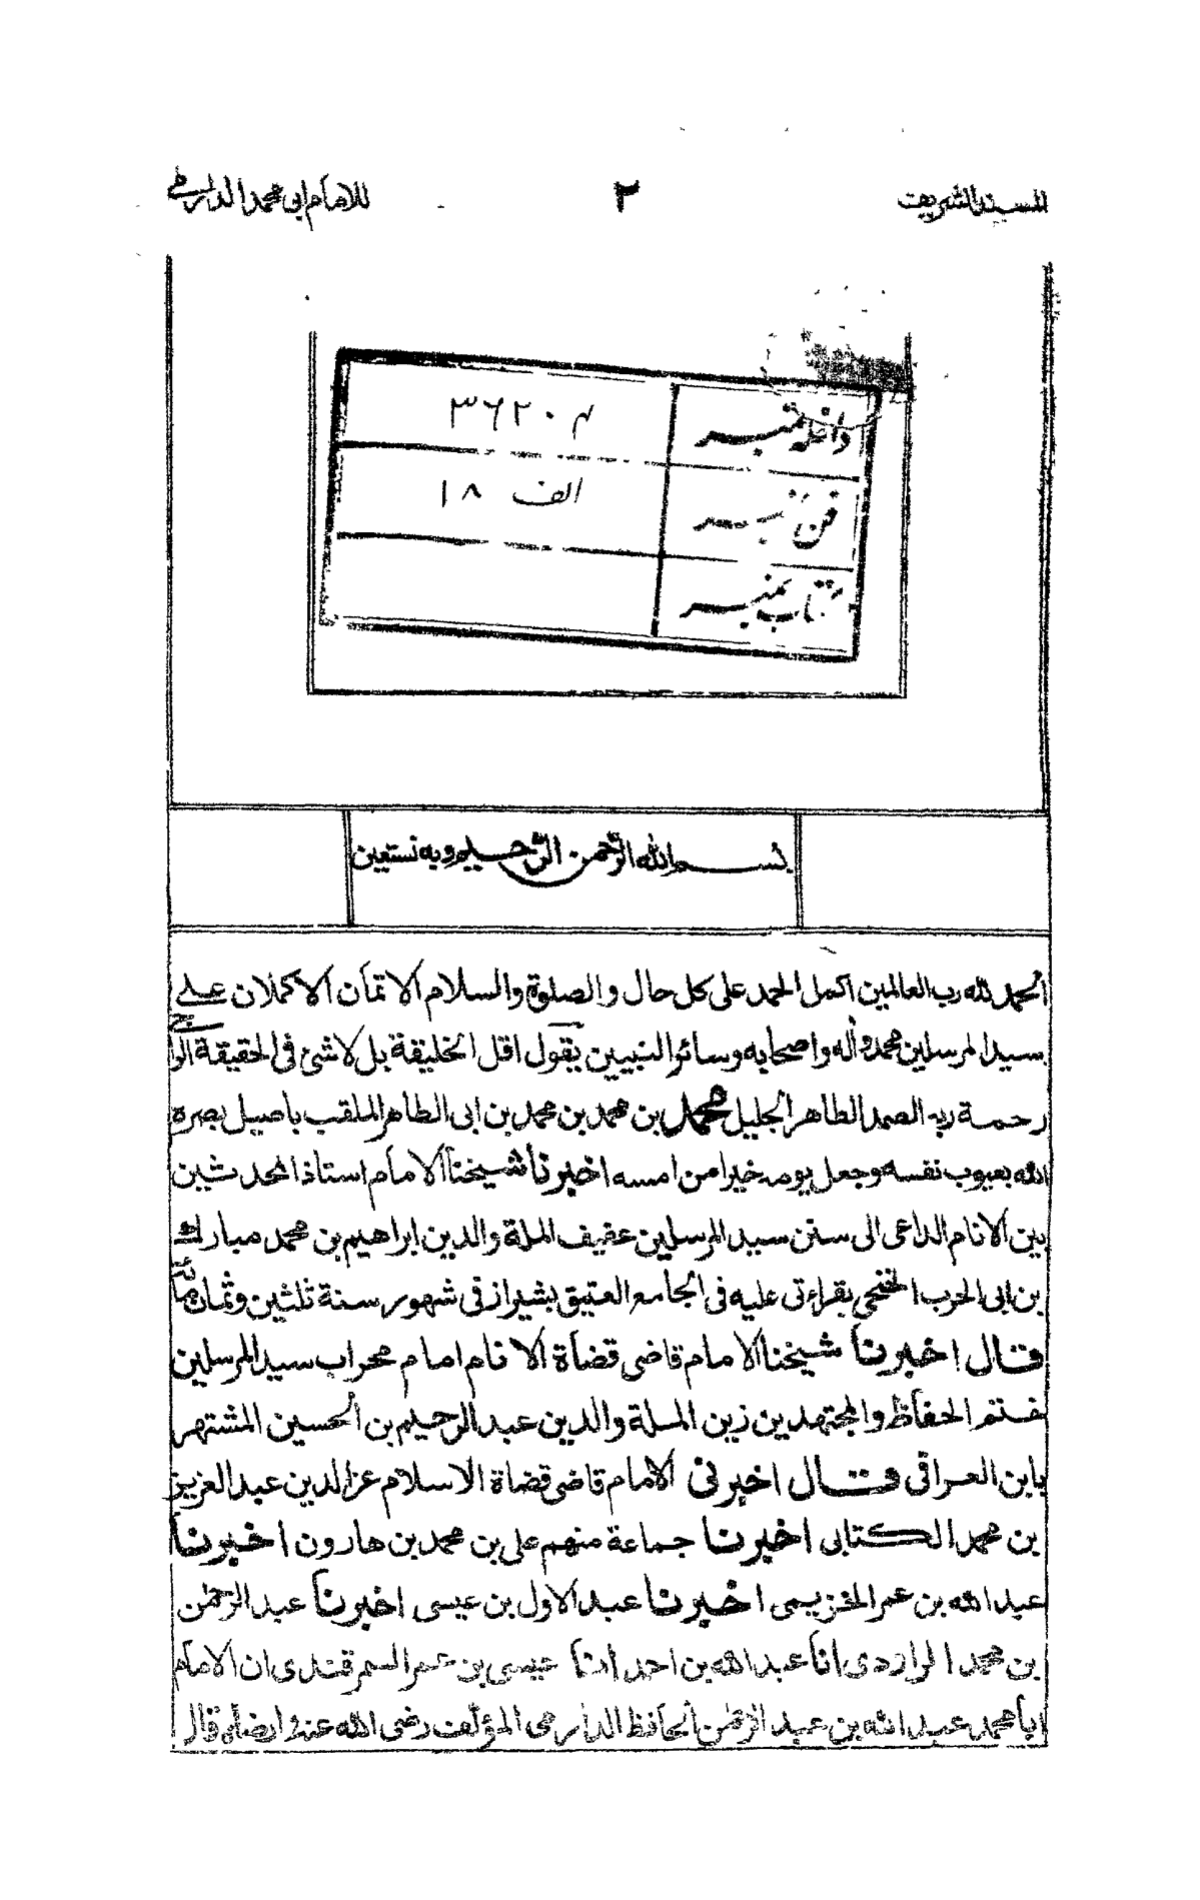 المسند الشريف ٢ للامام ابى محمد الدارمى
داخله نمبر ٣٦٢٠٢
فن نمبر الف ١٨
كتاب نمبر
بسم الله الرحمن الرحيم وبه نستعين
الحمد لله رب العالمين اكمل الحمد على كل حال والصلوة والسلام الاتمان الاكملان على
سيد المرسلين محمد وأله واصحابه وسائر النبيين يقول اقل الخليقة بل لاشئ فى الحقيقة الراجى
رحمة ربه الصمد الطاهر الجليل محمد بن محمد بن محمد بن ابى الطاهر الملقب باصيل بصره
الله بعيوب نفسه وجعل يومه خيرا من امسه اخبرنا شيخنا الامام استاذ المحدثين
بين الانام الداعى الى سنن سيد المرسلين عفيف الملة والدين ابراهيم بن محمد مبارك
بن ابى الحرب الخنجى بقراءتى عليه فى الجامع العتيق بشيراز فى شهور سنة ثلثين وثمان مائة
قال اخبرنا شيخنا الامام قاضى قضاة الانام امام محراب سيد المرسلين
ختم الحفاظ والمجتهدين زين الملة والدين عبد الرحيم بن الحسين المشتهر
بابن العراقى قال اخبرنى الامام قاضى قضاة الاسلام عز الدين عبد العزيز
بن محمد الكتابى اخبرنا جماعة منهم على بن محمد بن هارون اخبرنا
عبد الله بن عمر الخزيمى اخبرنا عبد الاول بن عيسى اخبرنا عبد الرحمن
بن محمد الراودى انا عبد الله بن احمد انا عيسى بن عمر السمرقندى ان الامام
ابا محمد عبد الله بن عبد الرحمن الحافظ الدارمى المؤلف رضى الله عنه وارضاه قال